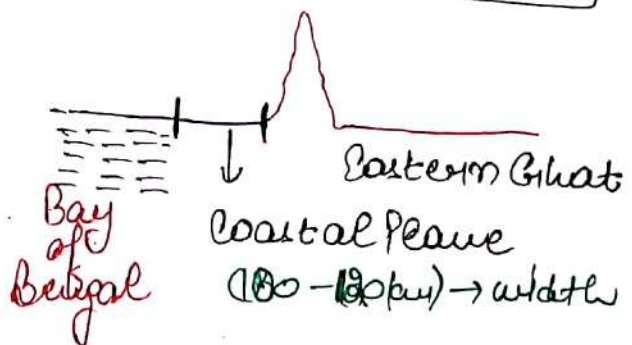 Eastern Ghat
Bay
of
Bengal
Coastal Plane
(100 - 120 km) → width